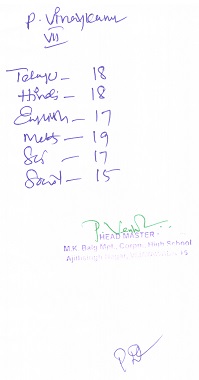 P. Vinaykumar
VII
Telugu - 18
Hindi - 18
English - 17
Maths - 19
Sci - 17
Social - 15
HEAD MASTER
M.K. Baig Mpl. Corpn. High School
Ajithsingh Nagar,